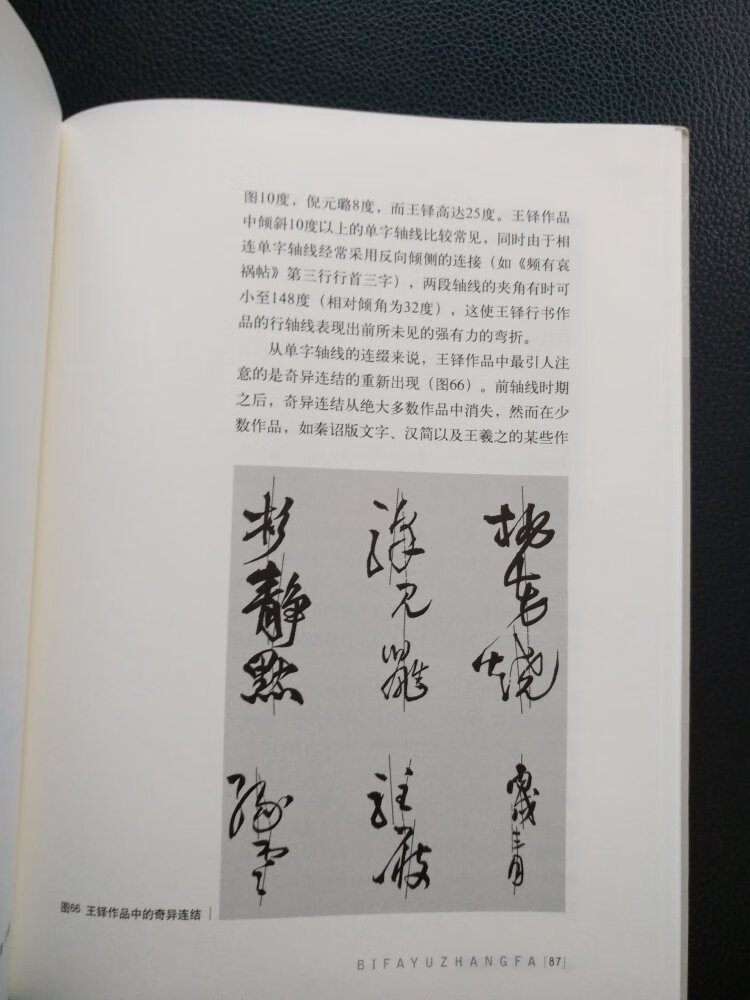 图10度，倪元璐8度，而王铎高达25度。王铎作品
中倾斜10度以上的单字轴线比较常见，同时由于相
连单字轴线经常采用反向倾侧的连接（如《频有哀
祸帖》第三行行首三字），两段轴线的夹角有时可
小至148度（相对倾角为32度），这使王铎行书作
品的行轴线表现出前所未见的强有力的弯折。
从单字轴线的连缀来说，王铎作品中最引人注
意的是奇异连结的重新出现（图66）。前轴线时期
之后，奇异连结从绝大多数作品中消失，然而在少
数作品，如秦诏版文字、汉简以及王羲之的某些作
静
默
见
图66 王铎作品中的奇异连结
BIFAYUZHANGFA [87]